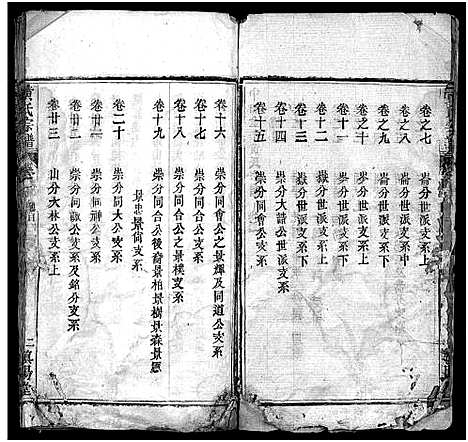 卷之七 崙分世派支系上
卷之八 崙分世派支系中
卷之九 崙分世派支系下
卷之十 嶽分世派支系上
卷十一 嶽分世派支系下
卷十二 嶽分世派支系上
卷十三 嶽分世派支系下
卷十四 崇分大譜公世派支系
卷十五 崇分同會公世派支系上
卷十六 崇分同會公之景輝及同道公支系
卷十七 崇分同合公支系
卷十八 崇分同合公之景樸支系
卷十九 崇分同合公後裔景柏景樹景森景恩
景忠景尚支系
卷二十 崇分同大公支系
卷廿一 崇分同神公支系
卷廿二 崇分同誠公支系及銘分支系
卷廿三 山分大林公支系上
氏宗譜
二